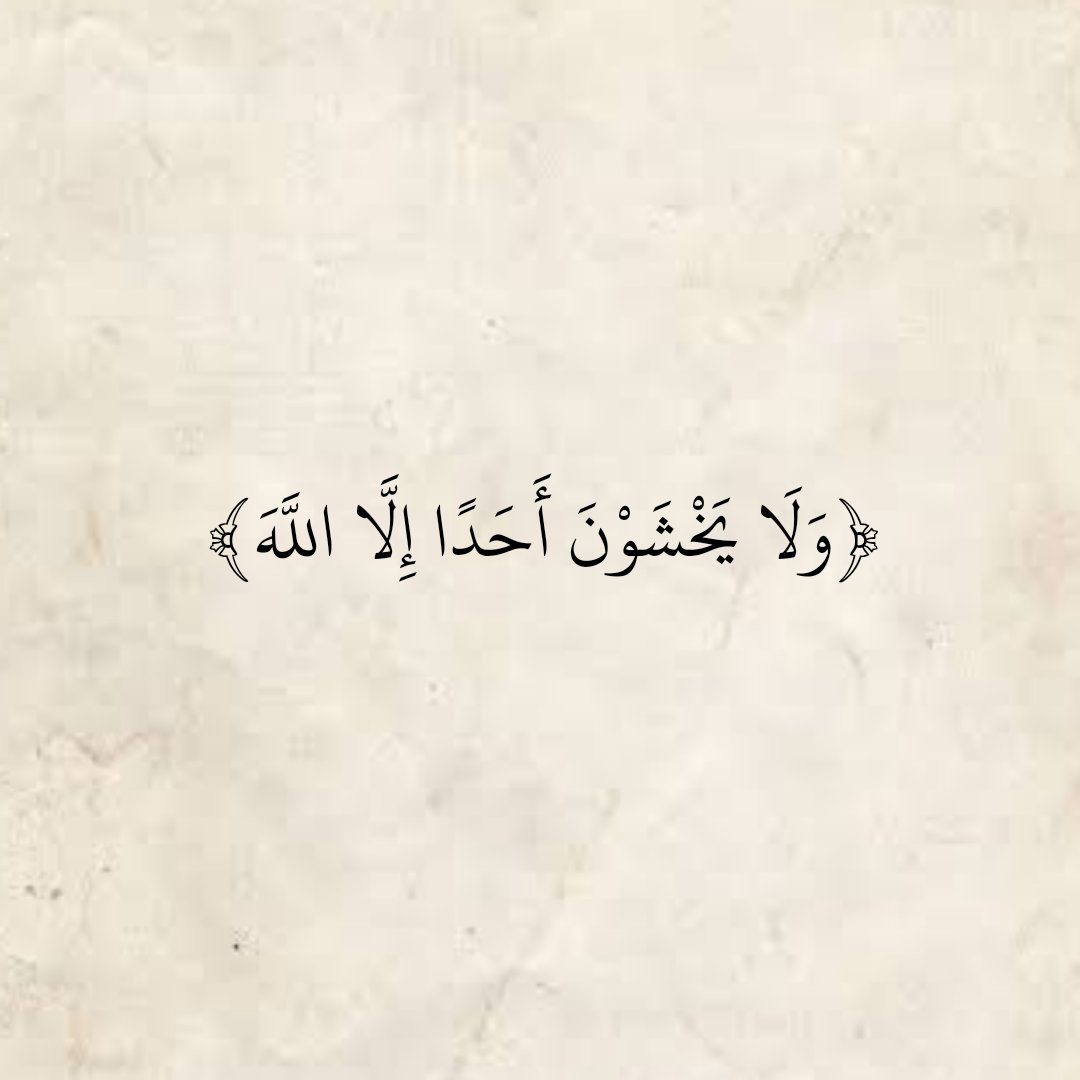 ﴿وَلَا يَخْشَوْنَ أَحَدًا إِلَّا اللَّهَ﴾